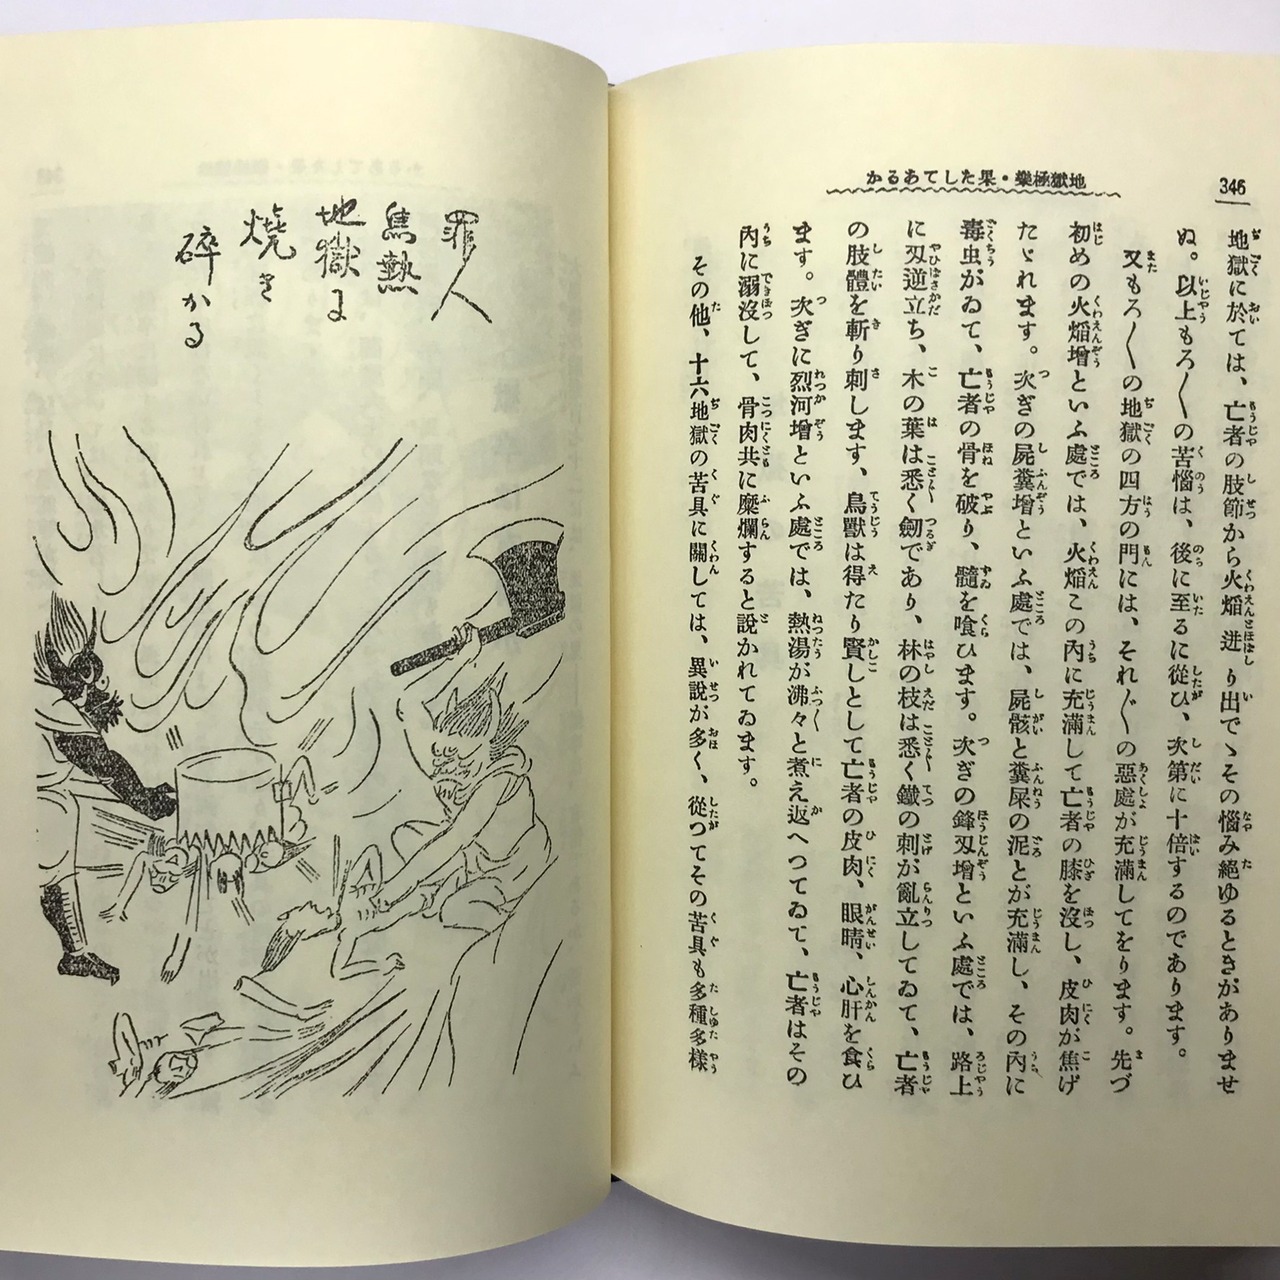 346
かるあてした果・樂極獄地
地獄に於ては、亡者の肢節から火焰迸り出でゝその惱み絕ゆるときがありませ
ぬ。以上もろ〳〵の苦惱は、後に至るに從ひ、次第に十倍するのであります。
又もろ〳〵の地獄の四方の門には、それ〴〵の惡處が充滿してをります。先づ
初めの火焰增といふ處では、火焰この內に充滿して亡者の膝を沒し、皮肉が焦げ
たゞれます。次ぎの屍糞增といふ處では、屍骸と糞屎の泥とが充滿し、その內に
毒虫がゐて、亡者の骨を破り、髓を喰ひます。次ぎの鋒刄增といふ處では、路上
に刄逆立ち、木の葉は悉く劒であり、林の枝は悉く鐵の刺が亂立してゐて、亡者
の肢體を斬り刺します、鳥獸は得たり賢しとして亡者の皮肉、眼睛、心肝を食ひ
ます。次ぎに烈河增といふ處では、熱湯が沸々と煮え返へつてゐて、亡者はその
內に溺沒して、骨肉共に糜爛すると說かれてゐます。
その他、十六地獄の苦具に關しては、異說が多く、從つてその苦具も多種多樣
罪人
焦熱
地獄に
燒き
碎かる